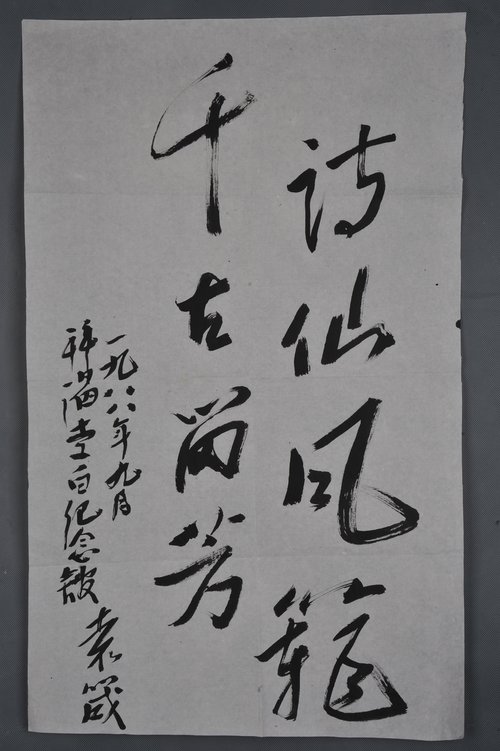 詩仙风範
千古留芳
一九八八年九月
拜谒李白纪念馆 袁箴